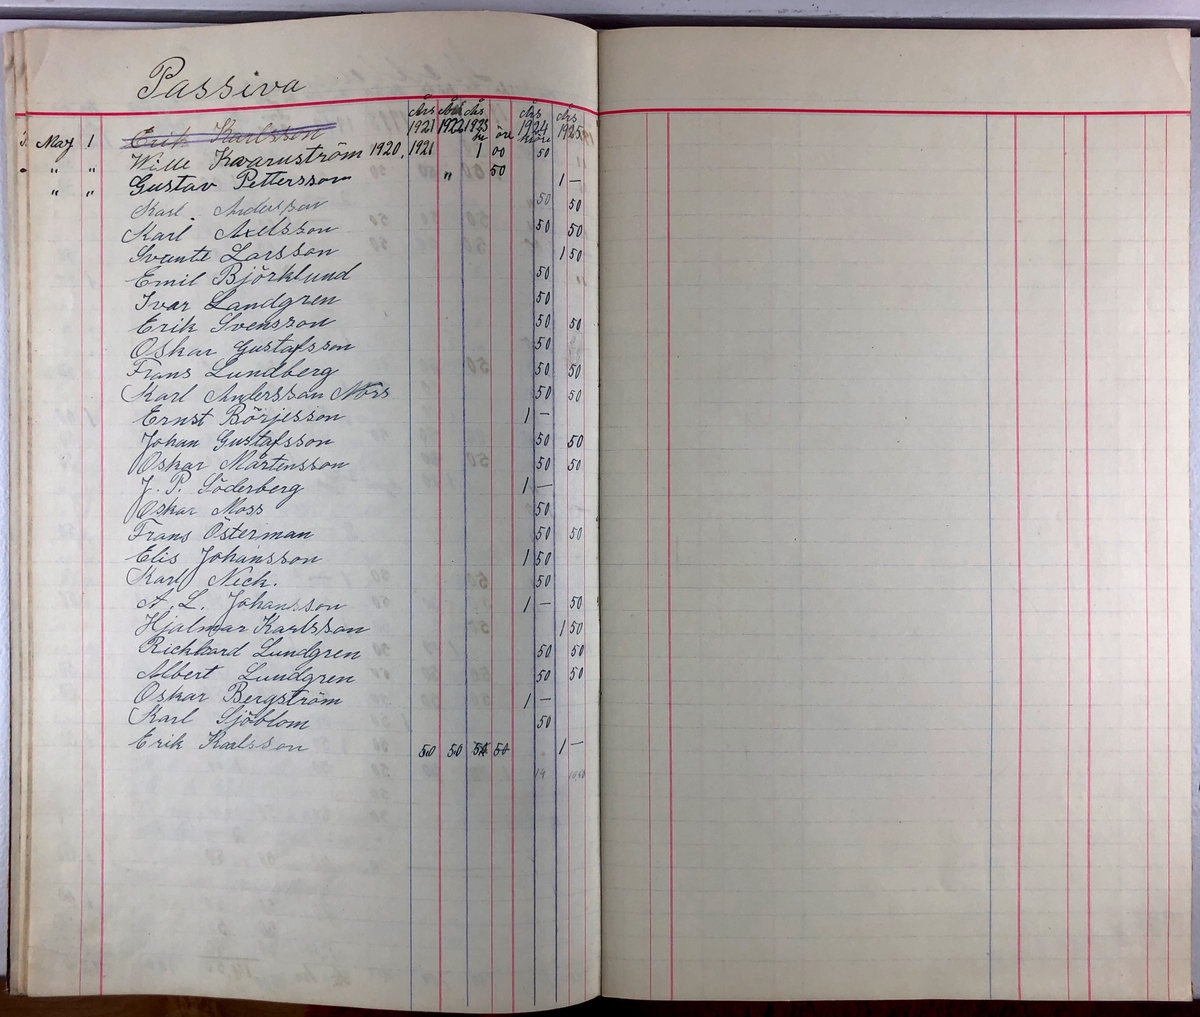 Passiva
Års 1921 Års 1922 Års 1923 kr öre Års 1924 kr öre Års 1925
Maj 1 Erik Karlsson
" " Wille Kvarnström 1920, 1921 1 00 50
" " Gustav Pettersson " 50 1 —
Karl Andersson 50 50
Karl Axelsson 50 50
Svante Larsson 1 50
Emil Björklund 50
Ivar Landgren 50
Erik Svensson 50 50
Oskar Gustafsson 50
Frans Lundberg 50 50
Karl Andersson Norrs 50 50
Ernst Börjesson 1 —
Johan Gustafsson 50 50
Oskar Mårtensson 50 50
J. P. Söderberg 1 —
Oskar Moss 50
Frans Österman 50 50
Elis Johansson 1 50
Karl Neck. 50
A. L. Johansson 1 — 50
Hjalmar Karlsson 1 50
Richkard Lundgren 50 50
Albert Lundgren 50 50
Oskar Bergström 1 —
Karl Sjöblom 50
Erik Karlsson 50 50 50 50 1 —
19